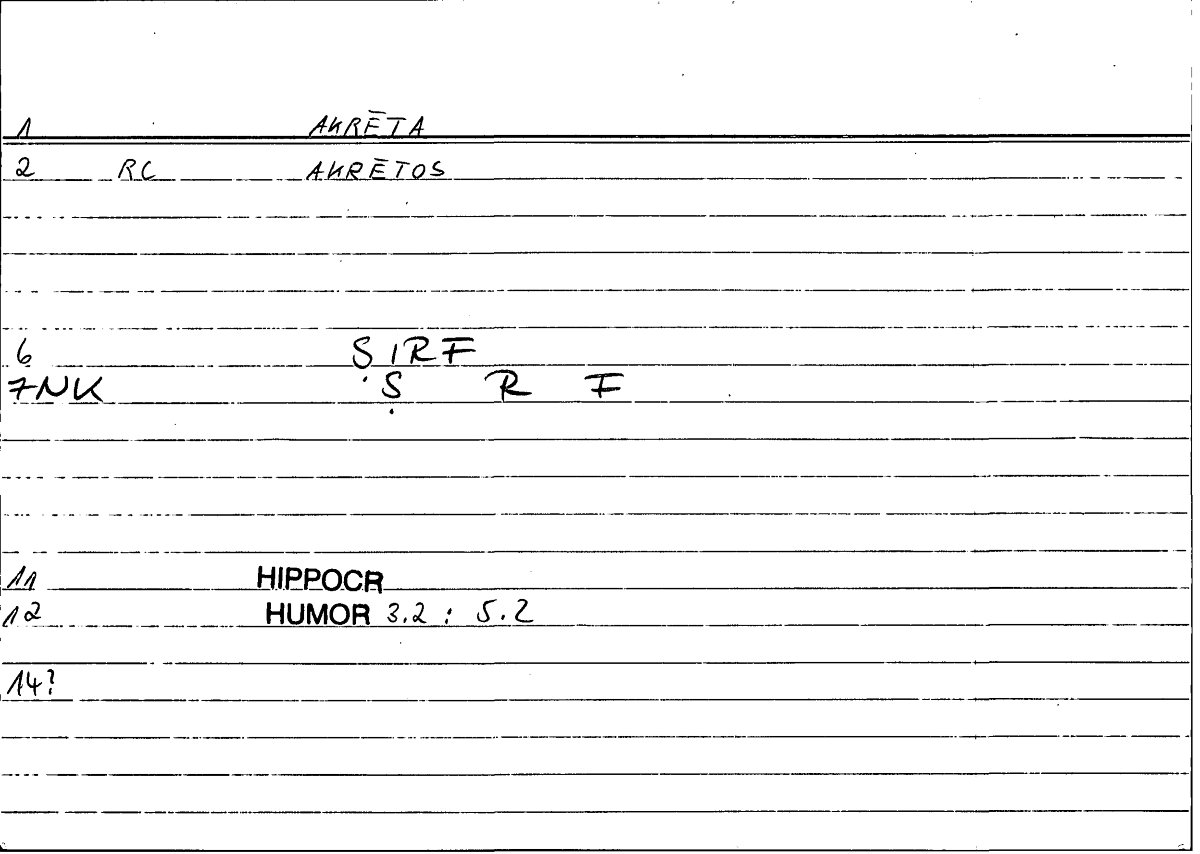 1 AKRĒTA
2 RC AKRĒTOS
6 ṢIRF
7NK Ṣ R F
11 HIPPOCR
12 HUMOR 3.2 : 5.2
14?